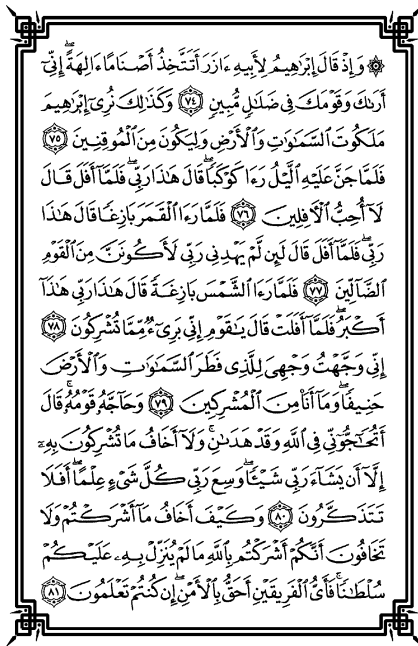 ۞ وَإِذْ قَالَ إِبْرَٰهِيمُ لِأَبِيهِ ءَازَرَ أَتَتَّخِذُ أَصْنَامًا ءَالِهَةً ۖ إِنِّىٓ
أَرَىٰكَ وَقَوْمَكَ فِى ضَلَٰلٍ مُّبِينٍ ٧٤ وَكَذَٰلِكَ نُرِىٓ إِبْرَٰهِيمَ
مَلَكُوتَ السَّمَٰوَٰتِ وَالْأَرْضِ وَلِيَكُونَ مِنَ الْمُوقِنِينَ ٧٥
فَلَمَّا جَنَّ عَلَيْهِ الَّيْلُ رَءَا كَوْكَبًا ۖ قَالَ هَٰذَا رَبِّى ۖ فَلَمَّآ أَفَلَ قَالَ
لَآ أُحِبُّ الْءَافِلِينَ ٧٦ فَلَمَّا رَءَا الْقَمَرَ بَازِغًا قَالَ هَٰذَا
رَبِّى ۖ فَلَمَّآ أَفَلَ قَالَ لَئِن لَّمْ يَهْدِنِى رَبِّى لَأَكُونَنَّ مِنَ الْقَوْمِ
الضَّآلِّينَ ٧٧ فَلَمَّا رَءَا الشَّمْسَ بَازِغَةً قَالَ هَٰذَا رَبِّى هَٰذَآ
أَكْبَرُ ۖ فَلَمَّآ أَفَلَتْ قَالَ يَٰقَوْمِ إِنِّى بَرِىٓءٌ مِّمَّا تُشْرِكُونَ ٧٨
إِنِّى وَجَّهْتُ وَجْهِىَ لِلَّذِى فَطَرَ السَّمَٰوَٰتِ وَالْأَرْضَ
حَنِيفًا ۖ وَمَآ أَنَا۠ مِنَ الْمُشْرِكِينَ ٧٩ وَحَآجَّهُۥ قَوْمُهُۥ ۚ قَالَ
أَتُحَٰٓجُّوٓنِّى فِى اللَّهِ وَقَدْ هَدَىٰنِ ۚ وَلَآ أَخَافُ مَا تُشْرِكُونَ بِهِۦٓ
إِلَّآ أَن يَشَآءَ رَبِّى شَيْـًٔا ۗ وَسِعَ رَبِّى كُلَّ شَىْءٍ عِلْمًا ۗ أَفَلَا
تَتَذَكَّرُونَ ٨٠ وَكَيْفَ أَخَافُ مَآ أَشْرَكْتُمْ وَلَا
تَخَافُونَ أَنَّكُمْ أَشْرَكْتُم بِاللَّهِ مَا لَمْ يُنَزِّلْ بِهِۦ عَلَيْكُمْ
سُلْطَٰنًا ۚ فَأَىُّ الْفَرِيقَيْنِ أَحَقُّ بِالْأَمْنِ ۖ إِن كُنتُمْ تَعْلَمُونَ ٨١